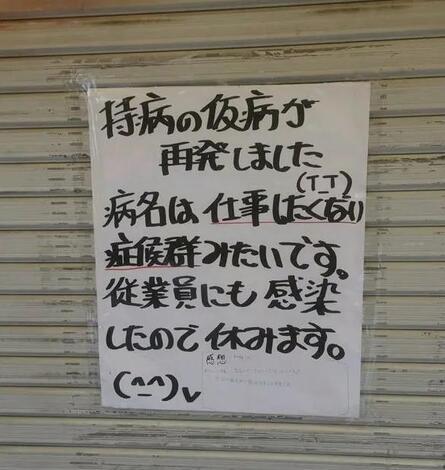 持病の仮病が
再発しました
(T_T)
病名は仕事したくない
症候群みたいです。
従業員にも感染
したので休みます。
(^_^)v
感想